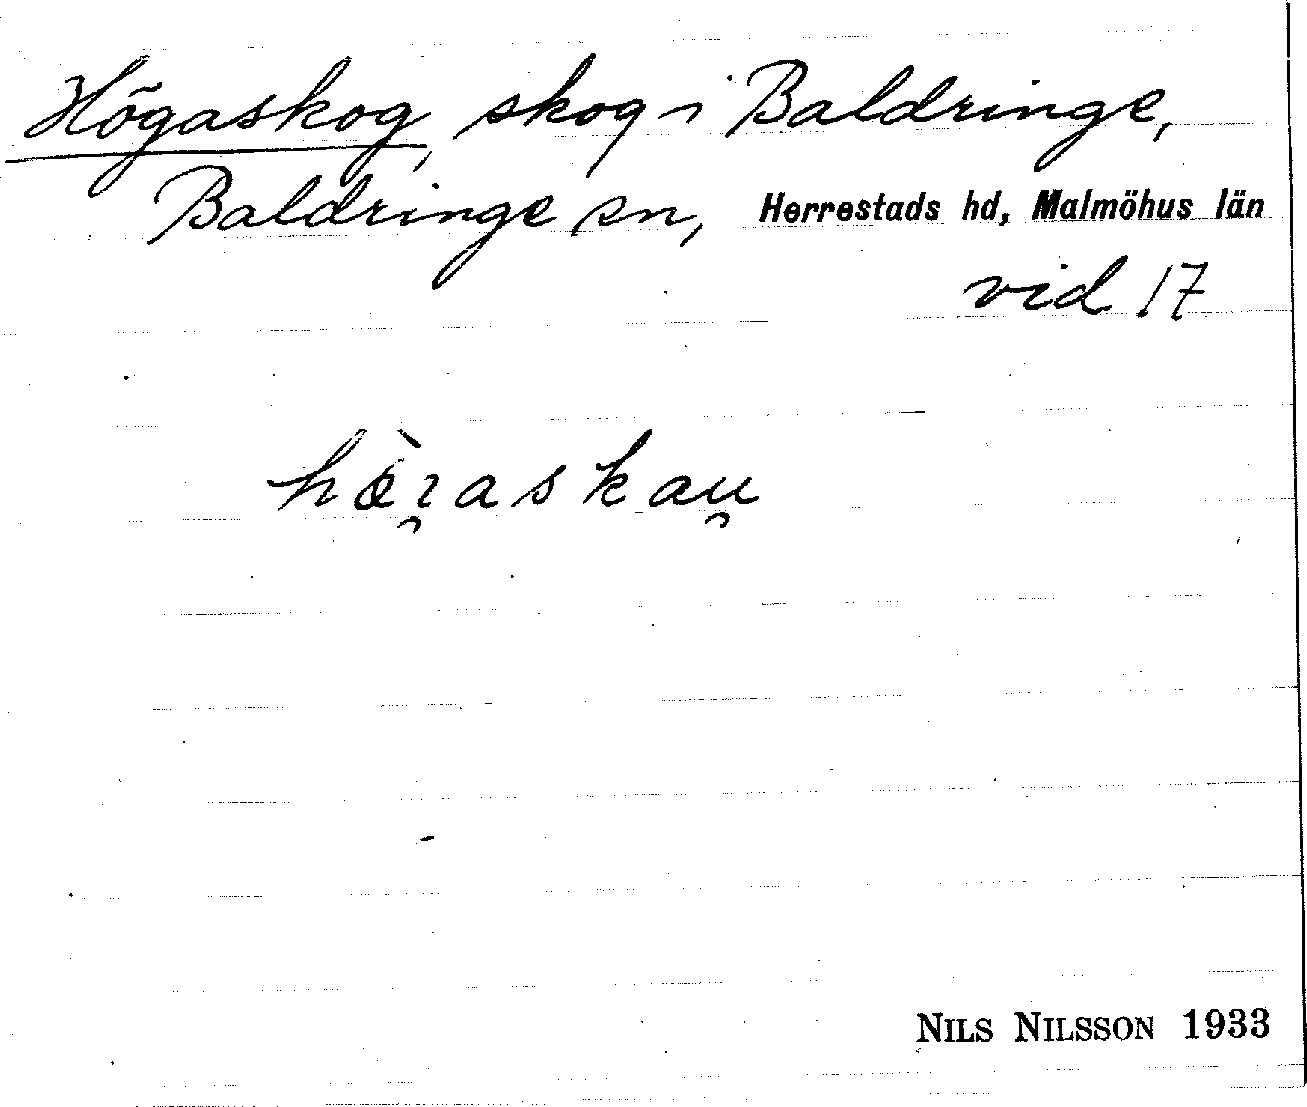 Högaskog, skog i Baldringe,
Baldringe sn, Herrestads hd, Malmöhus län
vid 17
hœ̀ɿ̯askau̯
NILS NILSSON 1933